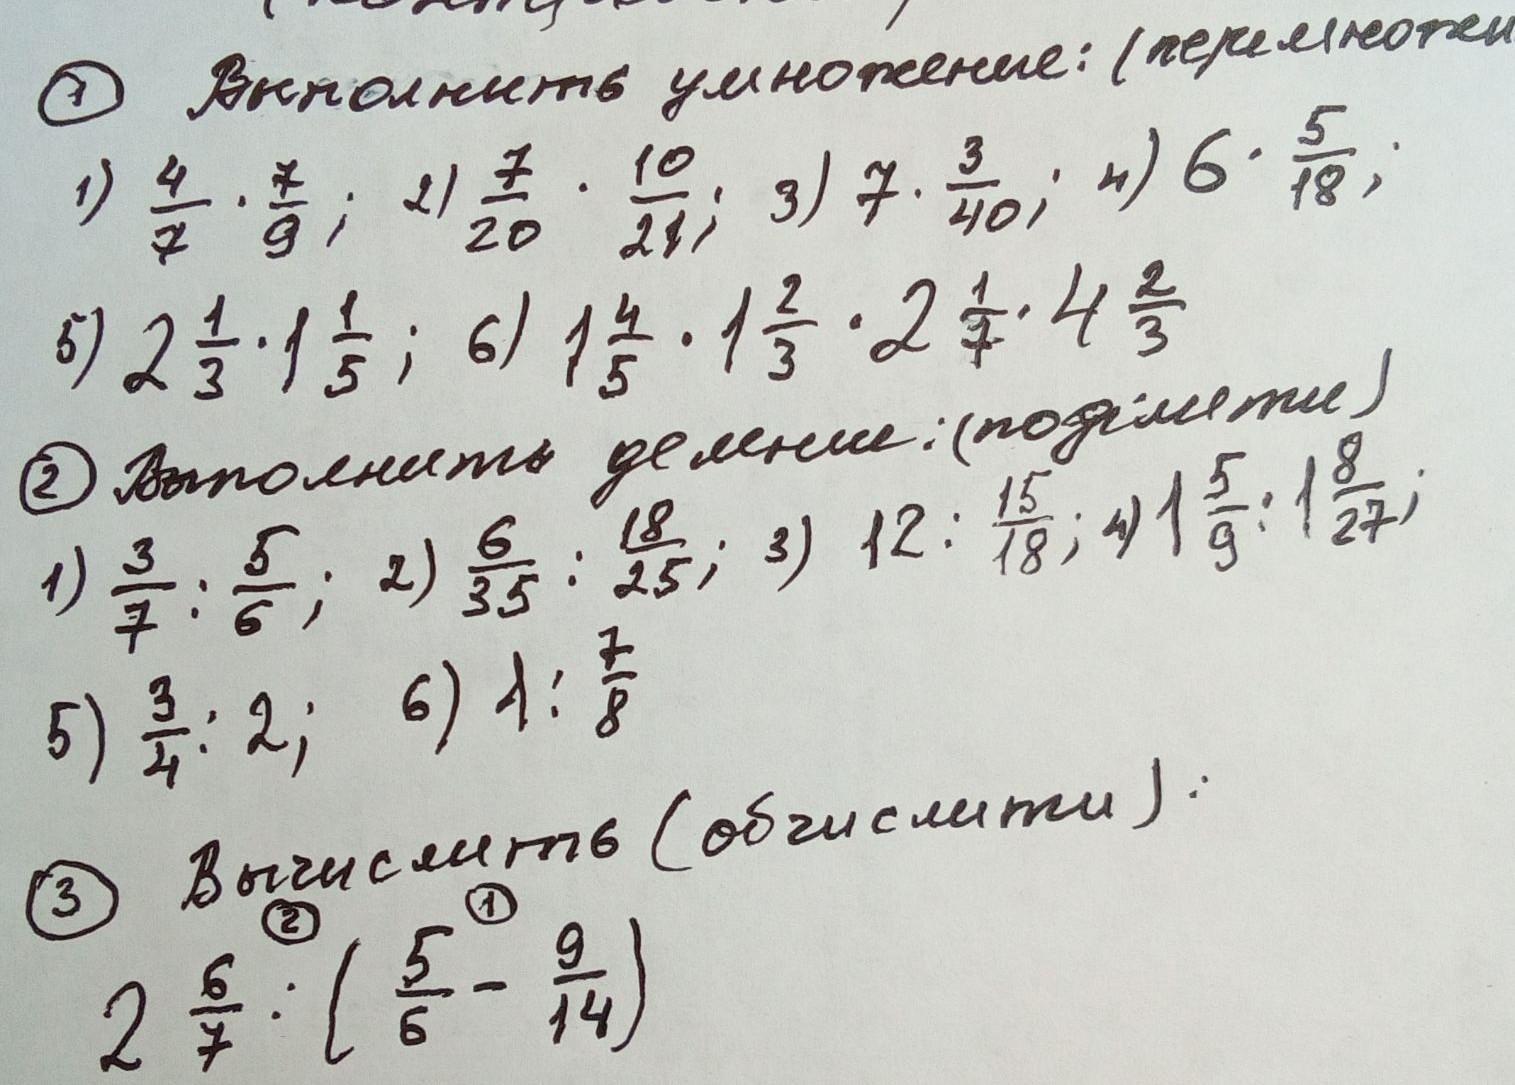 ① Выполнить умножение: (перемножи
1) 4/7 · 7/9; 2) 7/20 · 10/21; 3) 7 · 3/40; 4) 6 · 5/18;
5) 2 1/3 · 1 1/5; 6) 1 4/5 · 1 2/3 · 2 1/7 · 4 2/3
② Выполнить деление: (поділити)
1) 3/7 : 5/6; 2) 6/35 : 18/25; 3) 12 : 15/18; 4) 1 5/9 : 1 8/27;
5) 3/4 : 2; 6) 1 : 7/8
③ Вычислить (обчислити):
② ①
2 6/7 : (5/6 - 9/14)